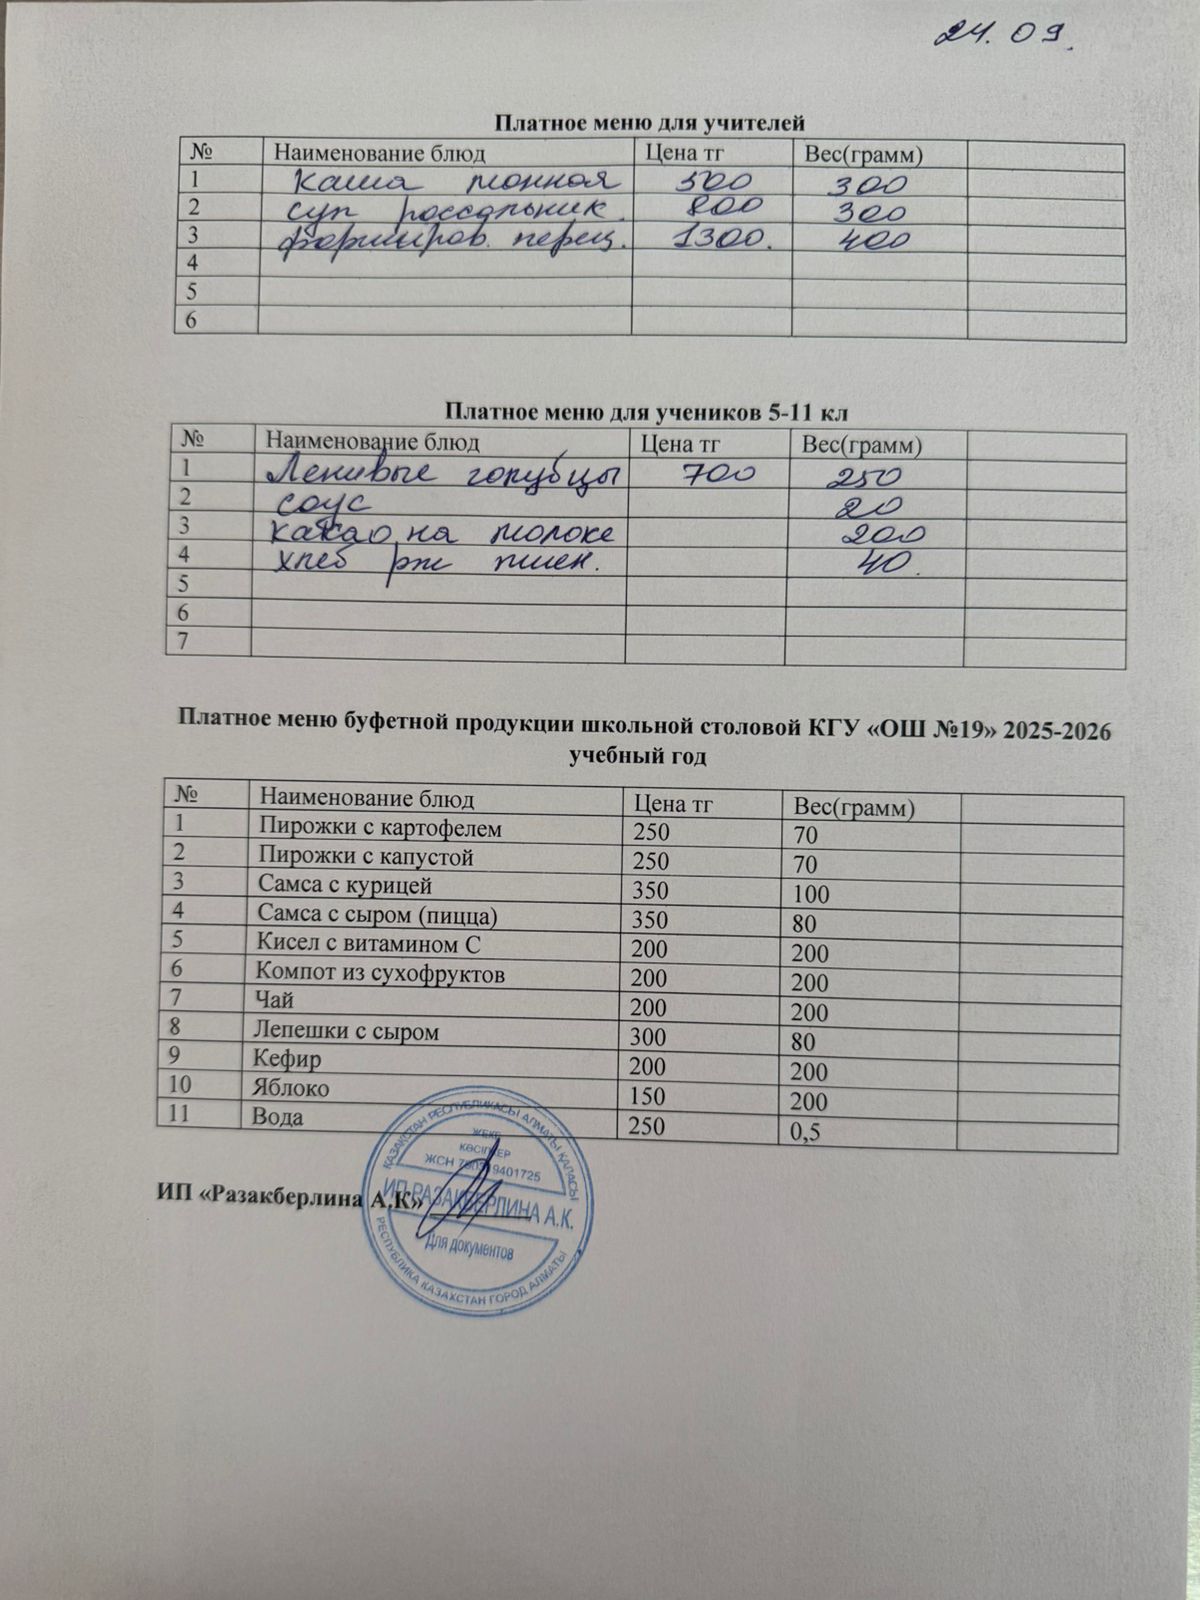 24. 09.
Платное меню для учителей
№ Наименование блюд Цена тг Вес(грамм)
1 Каша монная 500 300
2 суп россольник. 800 300
3 формиров. перец. 1300. 400
4
5
6
Платное меню для учеников 5-11 кл
№ Наименование блюд Цена тг Вес(грамм)
1 Ленивые голубцы 700 250
2 соус 20
3 какао на молоке 200
4 хлеб рж пшен. 40.
5
6
7
Платное меню буфетной продукции школьной столовой КГУ «ОШ №19» 2025-2026
учебный год
№ Наименование блюд Цена тг Вес(грамм)
1 Пирожки с картофелем 250 70
2 Пирожки с капустой 250 70
3 Самса с курицей 350 100
4 Самса с сыром (пицца) 350 80
5 Кисел с витамином С 200 200
6 Компот из сухофруктов 200 200
7 Чай 200 200
8 Лепешки с сыром 300 80
9 Кефир 200 200
10 Яблоко 150 200
11 Вода 250 0,5
ИП «Разакберлина А.К»
ҚАЗАҚСТАН РЕСПУБЛИКАСЫ АЛМАТЫ ҚАЛАСЫ
ЖЕКЕ
КӘСІПКЕР
ЖСН
ИП РАЗАКБЕРЛИНА А.К.
Для документов
РЕСПУБЛИКА КАЗАХСТАН ГОРОД АЛМАТЫ